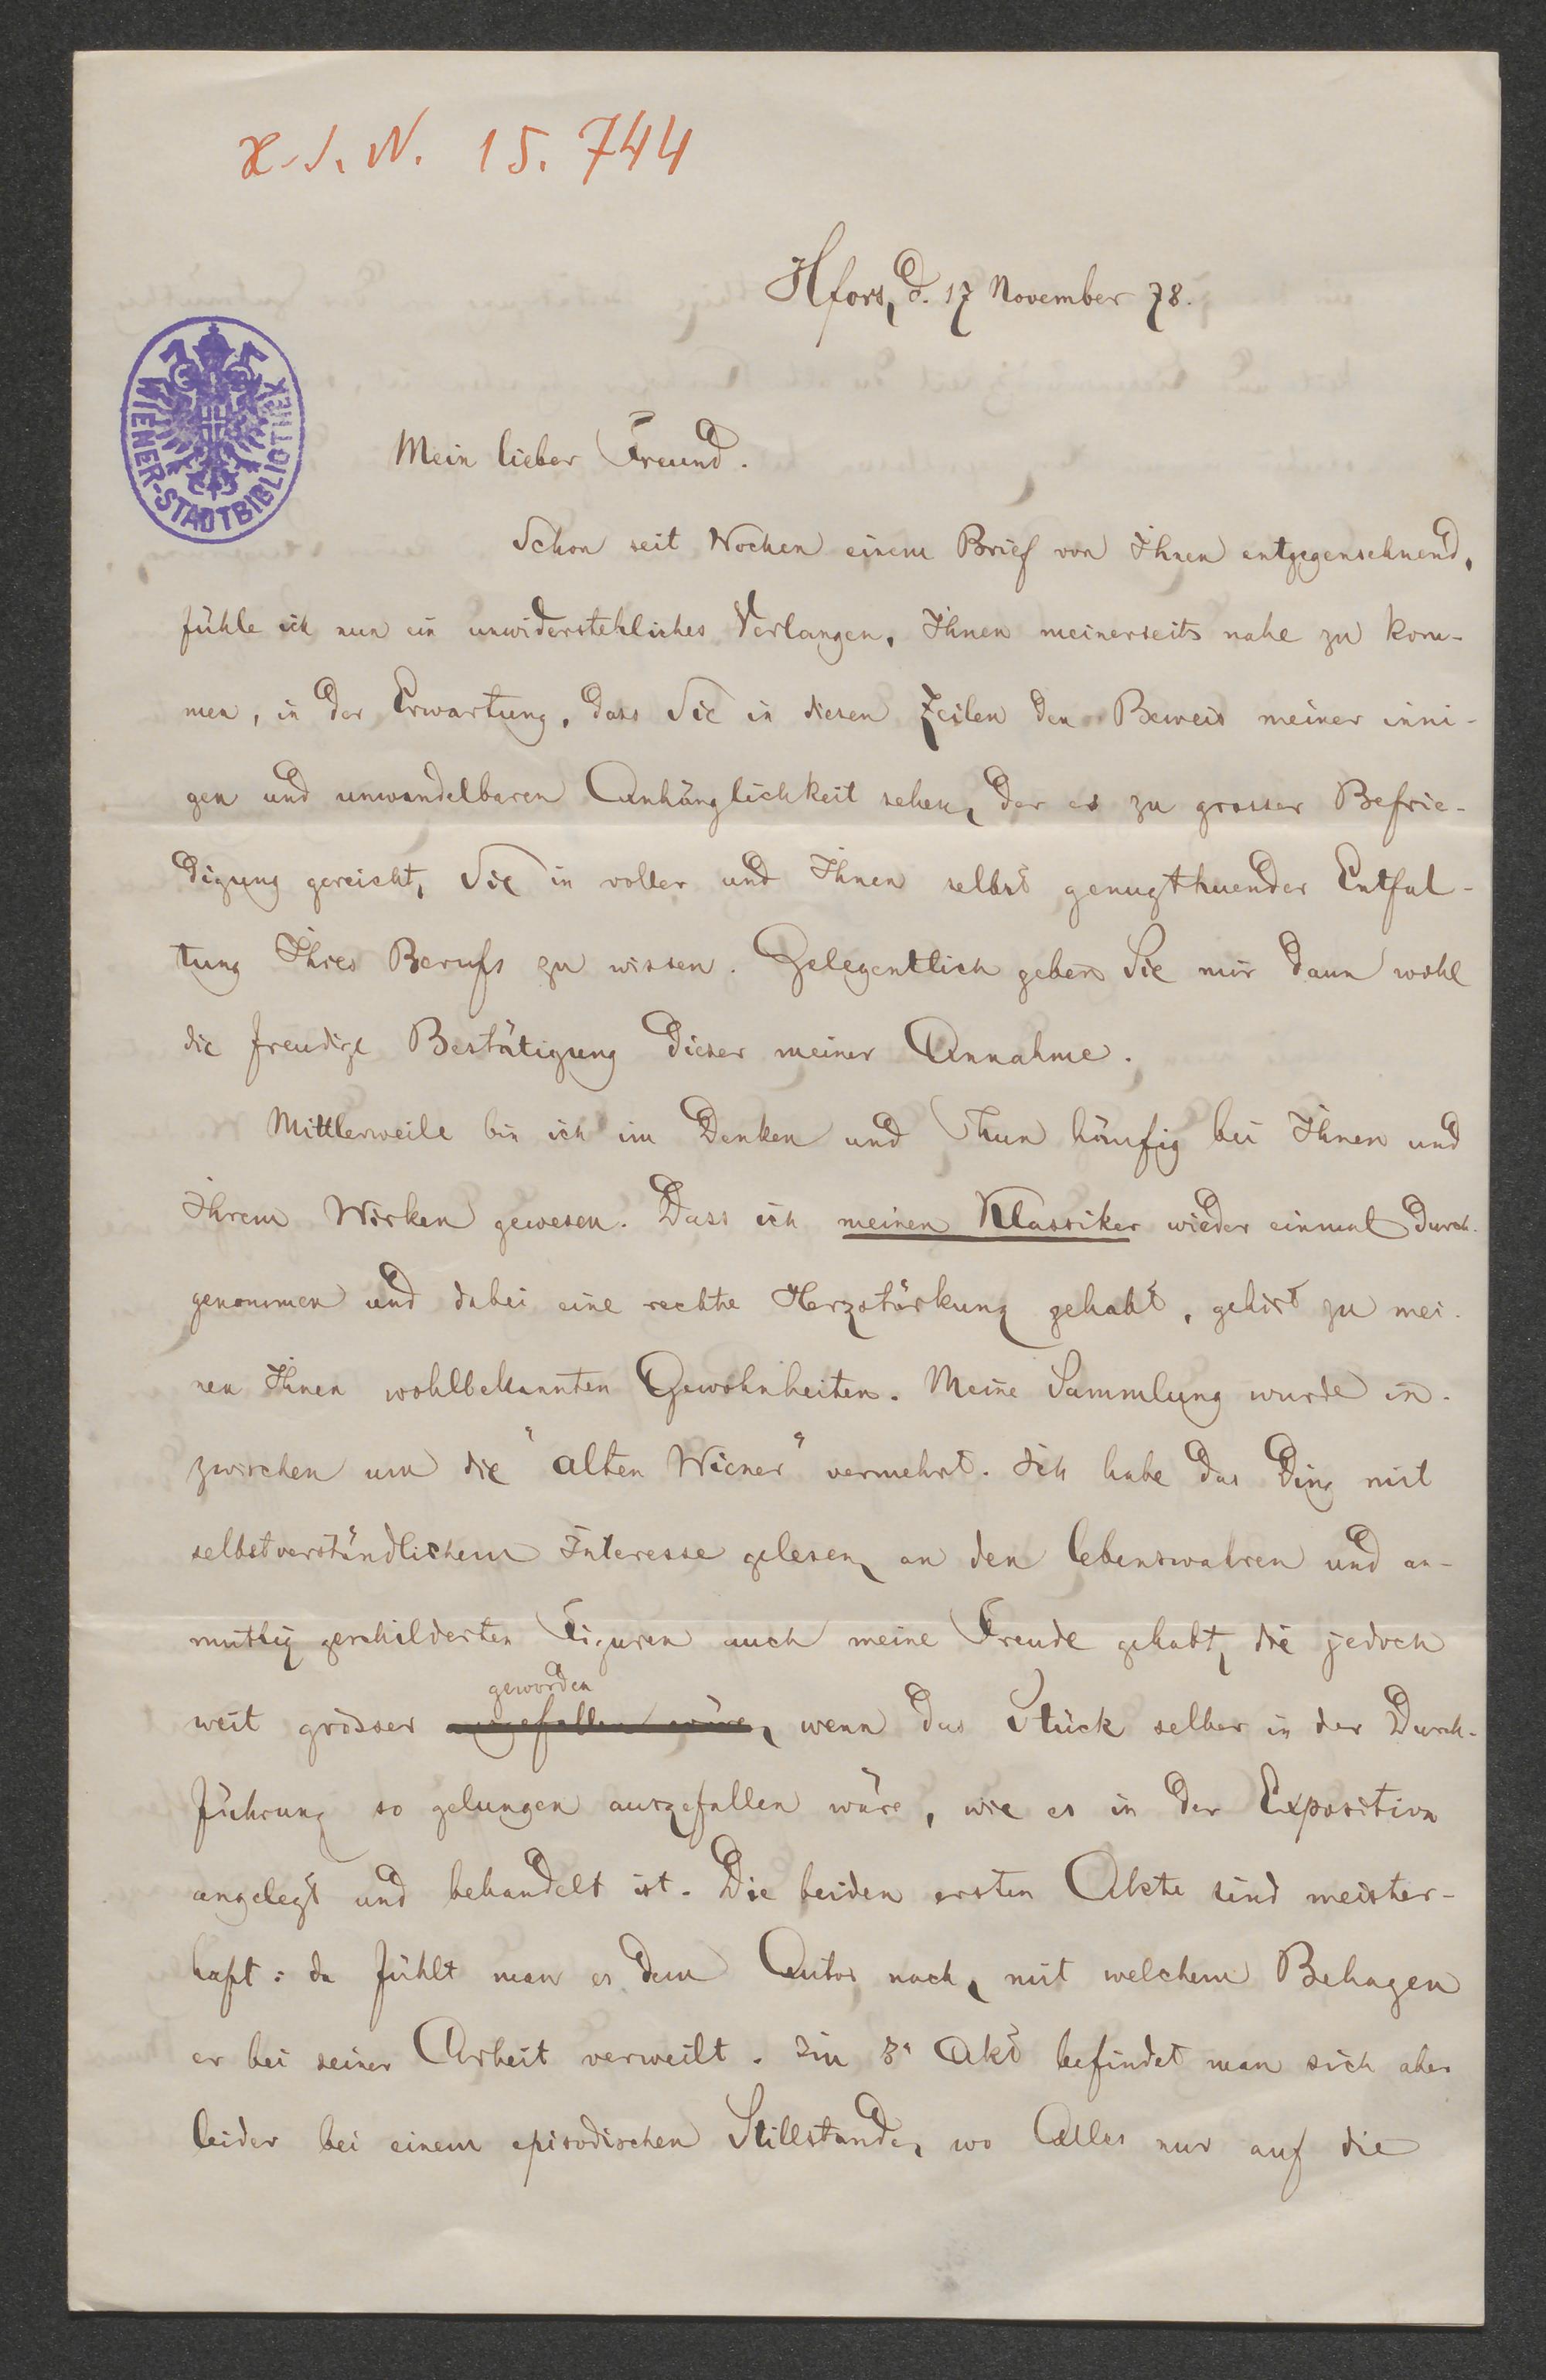 H. I. N. 15.744
Hfors, d. 17 November 78.
WIENER-STADTBIBLIOTHEK
Mein lieber Freund.
Schon seit Wochen einem Brief von Ihnen entgegensehnend,
fühle ich nun ein unwiderstehliches Verlangen, Ihnen meinerseits nahe zu kom-
men, in der Erwartung, dass Sie in diesen Zeilen den Beweis meiner inni-
gen und unwandelbaren Anhänglichkeit sehen, der es zu grosser Befrie-
digung gereicht, Sie in voller und Ihnen selbst genugthuender Entfal-
tung Ihres Berufs zu wissen. Gelegentlich geben Sie mir dann wohl
die freudige Bestätigung dieser meiner Annahme.
Mittlerweile bin ich im Denken und Thun häufig bei Ihnen und
Ihrem Wirken gewesen. Dass ich meinen Klassiker wieder einmal durch-
genommen und dabei eine rechte Herzstärkung gehabt, gehört zu mei-
nen Ihnen wohlbekannten Gewohnheiten. Meine Sammlung wurde in-
zwischen um die "alten Wiener" vermehrt. Ich habe das Ding mit
selbstverständlichem Interesse gelesen, an den lebenswahren und an-
muthig geschilderten Figuren auch meine Freude gehabt, die jedoch
geworden
weit grösser ausgefallen wäre, wenn das Stück selber in der Durch-
führung so gelungen ausgefallen wäre, wie es in der Exposition
angelegt und behandelt ist. Die beiden ersten Akte sind meister-
haft: da fühlt man es dem Autor nach, mit welchem Behagen
er bei seiner Arbeit verweilt. Im 3n Akt befindet man sich aber
leider bei einem episodischen Stillstande, wo Alles nur auf die